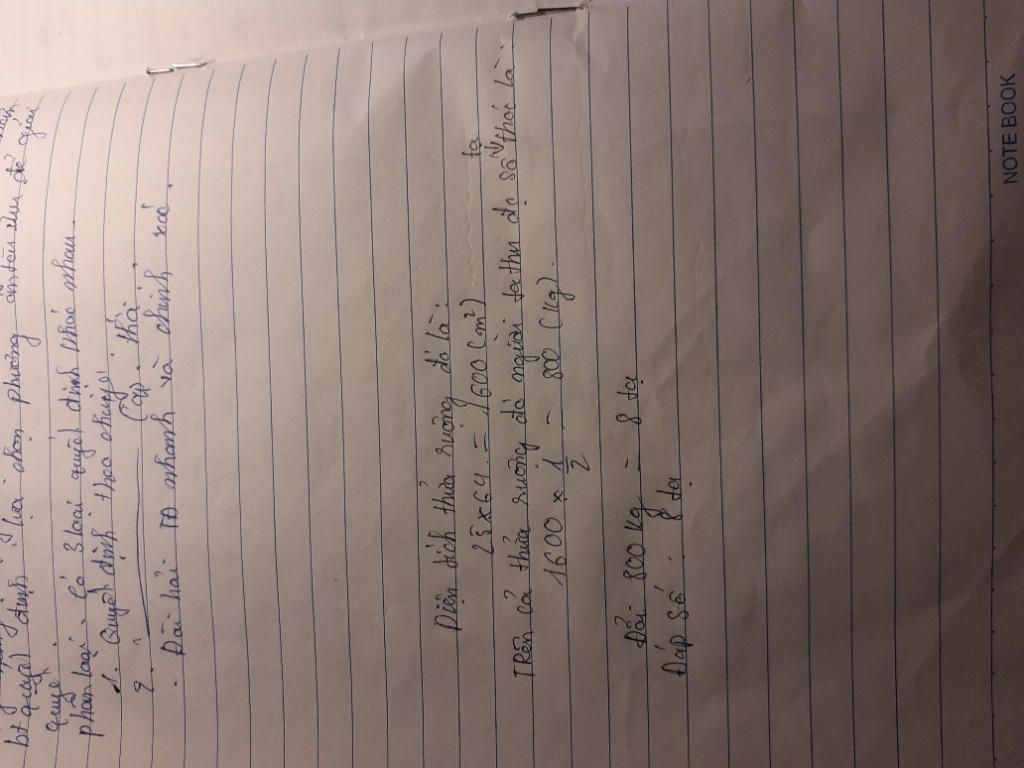 bị quyết định lựa chọn phương để giải
quyết.
phân loại: Có 3 loại quyết định khác nhau.
1. Quyết định theo chuẩn
2. cấp. thấp.
. Đòi hỏi TĐ nhanh và chính xác.
Diện tích thửa ruộng đó là:
25 x 64 = 1600 (m²)
Trên cả thửa ruộng đó người ta thu đc số tạ thóc là:
1600 x 1/2 = 800 (kg).
Đổi 800 kg = 8 tạ
Đáp số: 8 tạ
NOTE BOOK